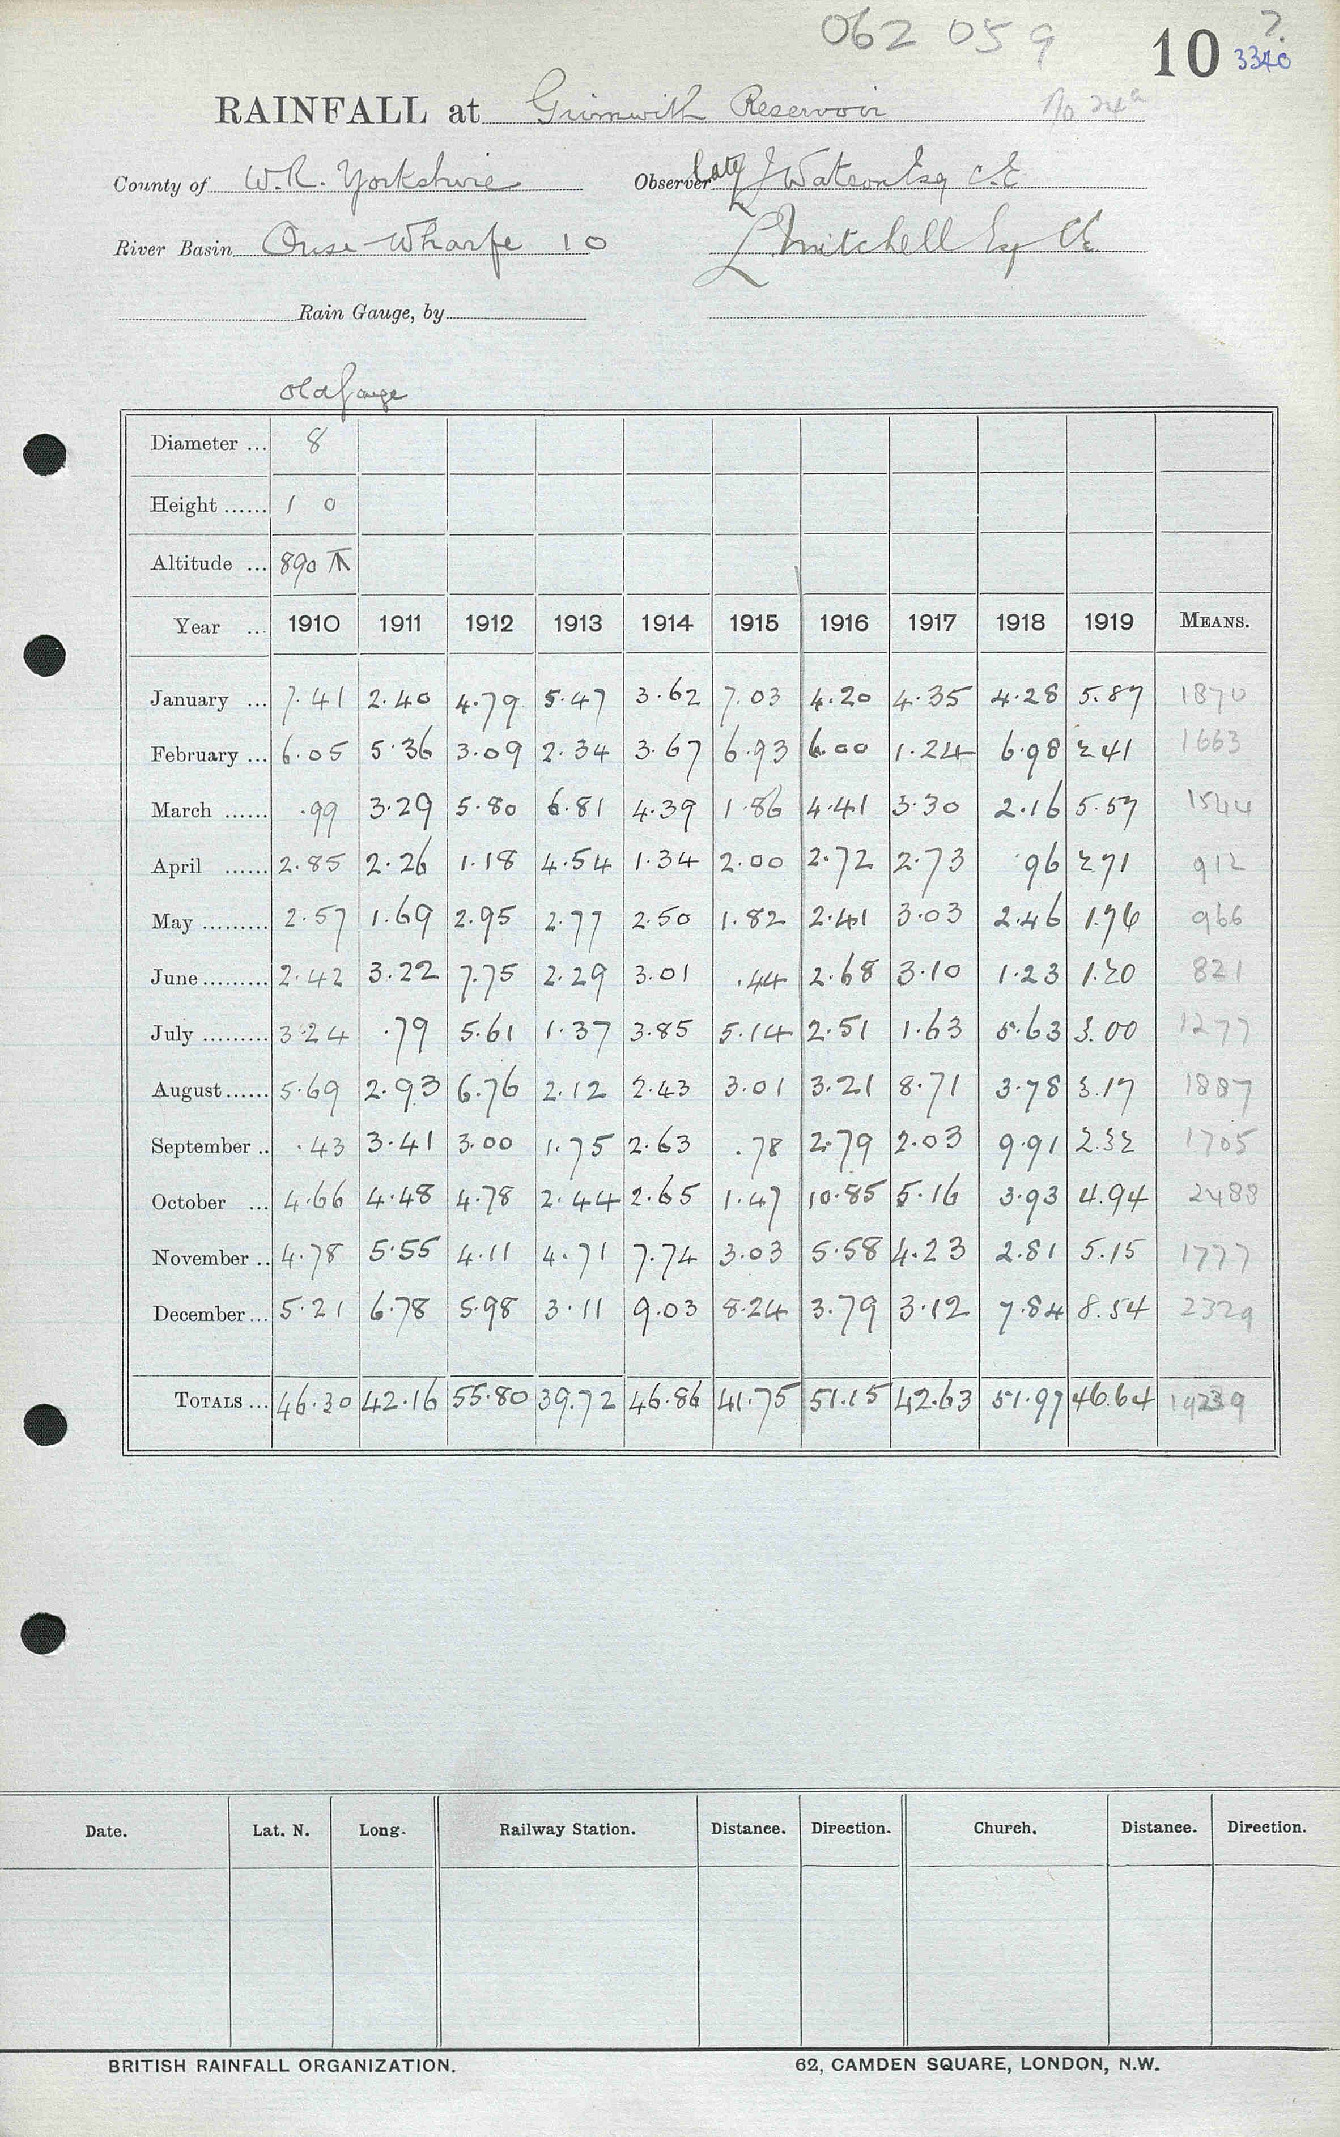 062 059
10 7.
3340
RAINFALL at Grimwith Reservoir No 24a
County of W.R. Yorkshire Observer late J Watson Esq C.E
River Basin Ouse-Wharfe 10 L Mitchell Esq CE
Rain Gauge, by
old gauge
Diameter ... 8
Height ...... 1 0
Altitude ... 890 T
Year ... 1910 1911 1912 1913 1914 1915 1916 1917 1918 1919 MEANS.
January ... 7.41 2.40 4.79 5.47 3.62 7.03 4.20 4.35 4.28 5.87 1870
February ... 6.05 5.36 3.09 2.34 3.67 6.93 6.00 1.24 6.98 2 41 1663
March ...... .99 3.29 5.80 6.81 4.39 1.86 4.41 3.30 2.16 5.57 1544
April ...... 2.85 2.26 1.18 4.54 1.34 2.00 2.72 2.73 .96 2.71 912
May ......... 2.57 1.69 2.95 2.77 2.50 1.82 2.41 3.03 2.46 1.76 966
June ......... 2.42 3.22 7.75 2.29 3.01 .44 2.68 3.10 1.23 1.20 821
July ......... 3.24 .79 5.61 1.37 3.85 5.14 2.51 1.63 5.63 3.00 1277
August ...... 5.69 2.93 6.76 2.12 2.43 3.01 3.21 8.71 3.78 3.17 1887
September .. .43 3.41 3.00 1.75 2.63 .78 2.79 2.03 9.91 2.32 1705
October ... 4.66 4.48 4.78 2.44 2.65 1.47 10.85 5.16 3.93 4.94 2488
November .. 4.78 5.55 4.11 4.71 7.74 3.03 5.58 4.23 2.81 5.15 1777
December ... 5.21 6.78 5.98 3.11 9.03 8.24 3.79 3.12 7.84 8.54 2329
TOTALS ... 46.30 42.16 55.80 39.72 46.86 41.75 51.15 42.63 51.97 46.64 19239
Date. Lat. N. Long. Railway Station. Distance. Direction. Church. Distance. Direction.
BRITISH RAINFALL ORGANIZATION. 62, CAMDEN SQUARE, LONDON, N.W.